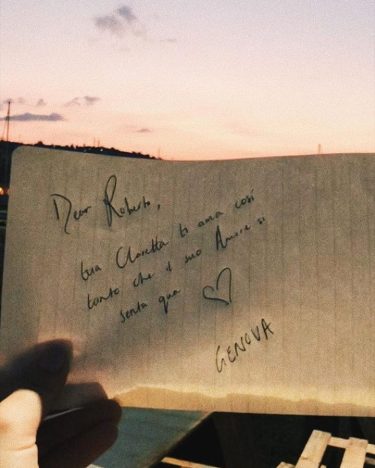 Dear Roberto,
tua Claretta ti ama così
tanto che il suo Amore si
senta qua
GENOVA